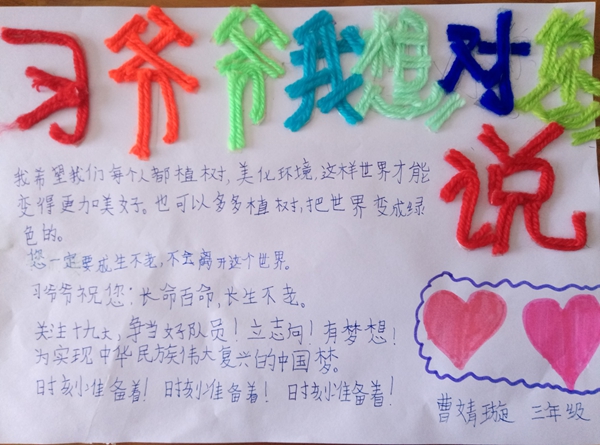 习爷爷我想对您
说
我希望我们每个人都植树,美化环境,这样世界才能
变得更加美好。也可以多多植树,把世界变成绿
色的。
您一定要成生不老,不会离开这个世界。
习爷爷祝您:长命百命,长生不老。
关注十九大,争当好队员!立志向!有梦想!
为实现中华民族伟大复兴的中国梦。
时刻准备着!时刻准备着!时刻准备着!
曹婧璇 三年级